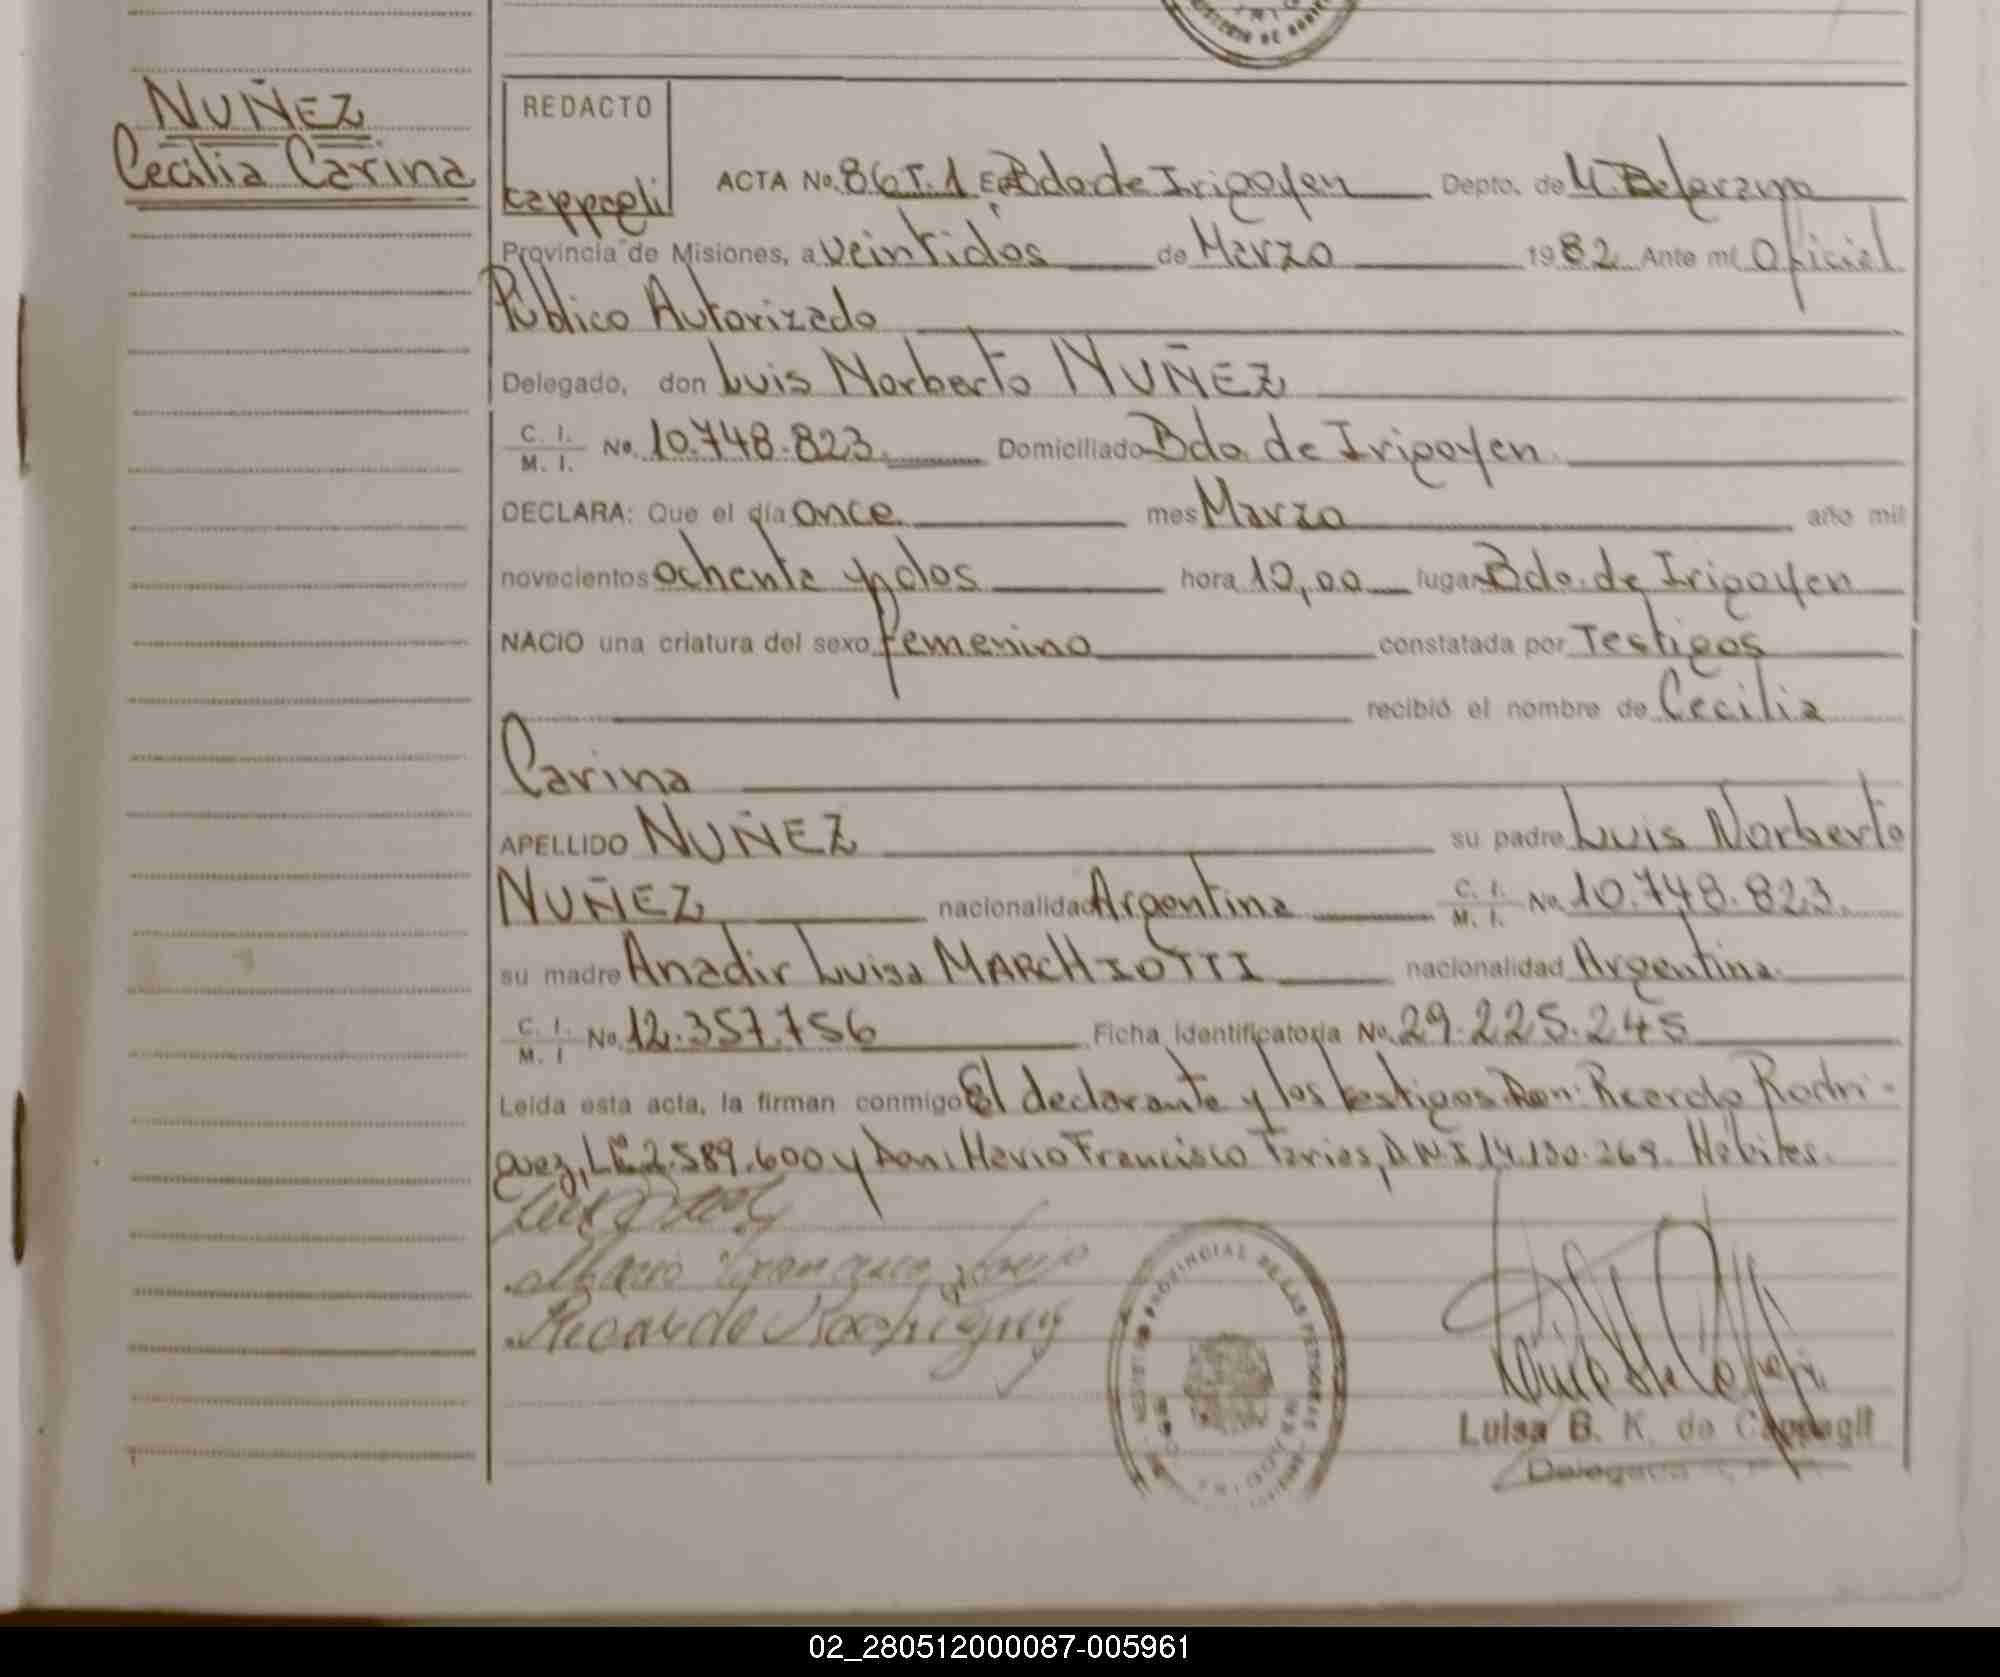 NUÑEZ
Cecilia Carina
REDACTO
Cappagli
ACTA No. 86 T. 1 En Bdo de Irigoyen Depto. de M. Belgrano
Provincia de Misiones, a veintidós de Marzo 1982 Ante mí Oficial
Público Autorizado
Delegado, don Luis Norberto NUÑEZ
C. I. M. I. No. 10.748.823. Domiciliado Bdo. de Irigoyen
DECLARA: Que el día once mes Marzo año mil
novecientos ochenta y dos hora 10,00 lugar Bdo. de Irigoyen
NACIO una criatura del sexo femenino constatada por Testigos
recibió el nombre de Cecilia
Carina
APELLIDO NUÑEZ su padre Luis Norberto
NUÑEZ nacionalidad Argentina C. I. M. I. No. 10.748.823.
su madre Anadir Luisa MARCHIOTTI nacionalidad Argentina
C. I. M. I No. 12.357.756 Ficha identificatoria No. 29.225.245
Leída esta acta, la firman conmigo El declarante y los testigos Don: Ricardo Rodrí-
guez, L.E. 2.589.600 y Don: Mario Francisco Farias, D.N.I 14.130.269. Hábiles.
Mario Francisco Farias
Ricardo Rodriguez
REGISTRO PROVINCIAL DE LAS PERSONAS
Luisa B. K. de Cappagli
Delegada
02_280512000087-005961